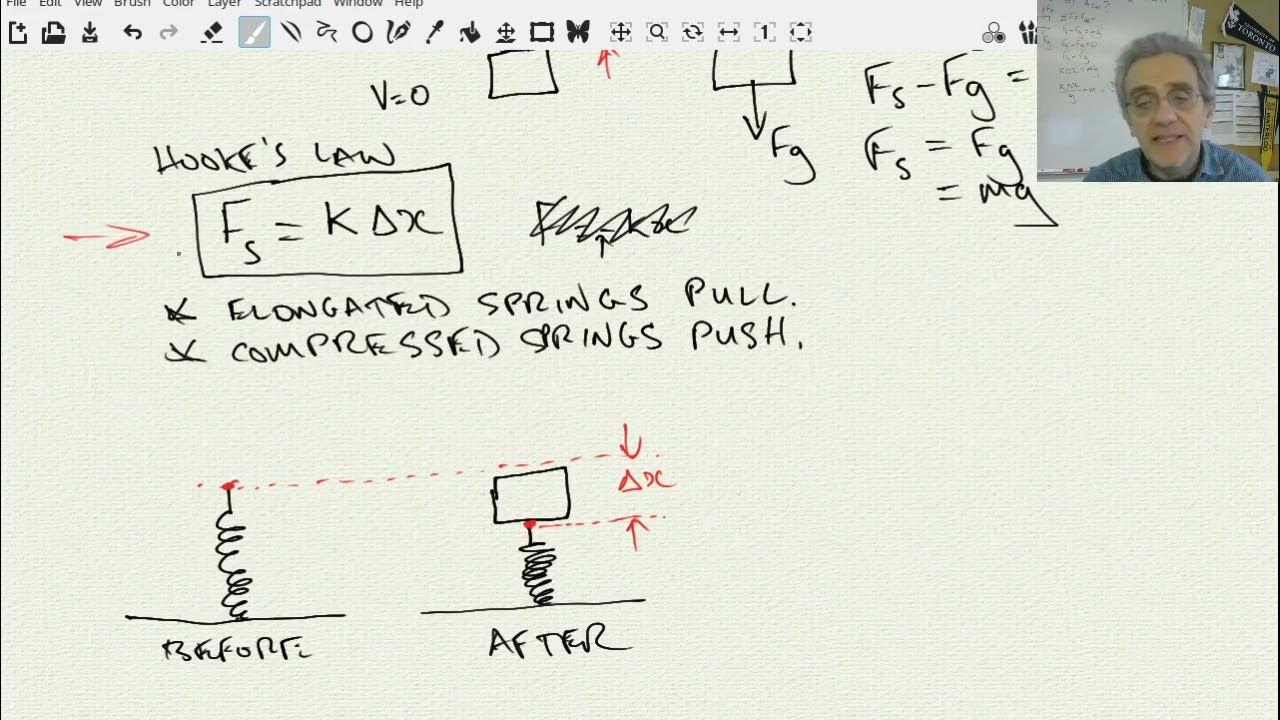 File Edit View Brush Color Layer Scratchpad Window Help
TORONTO
V=0
Fs - Fg =
Fg
Fs = Fg
= mg
HOOKE'S LAW
Fs = K Δx
* ELONGATED SPRINGS PULL.
* COMPRESSED SPRINGS PUSH.
Δx
BEFORE
AFTER